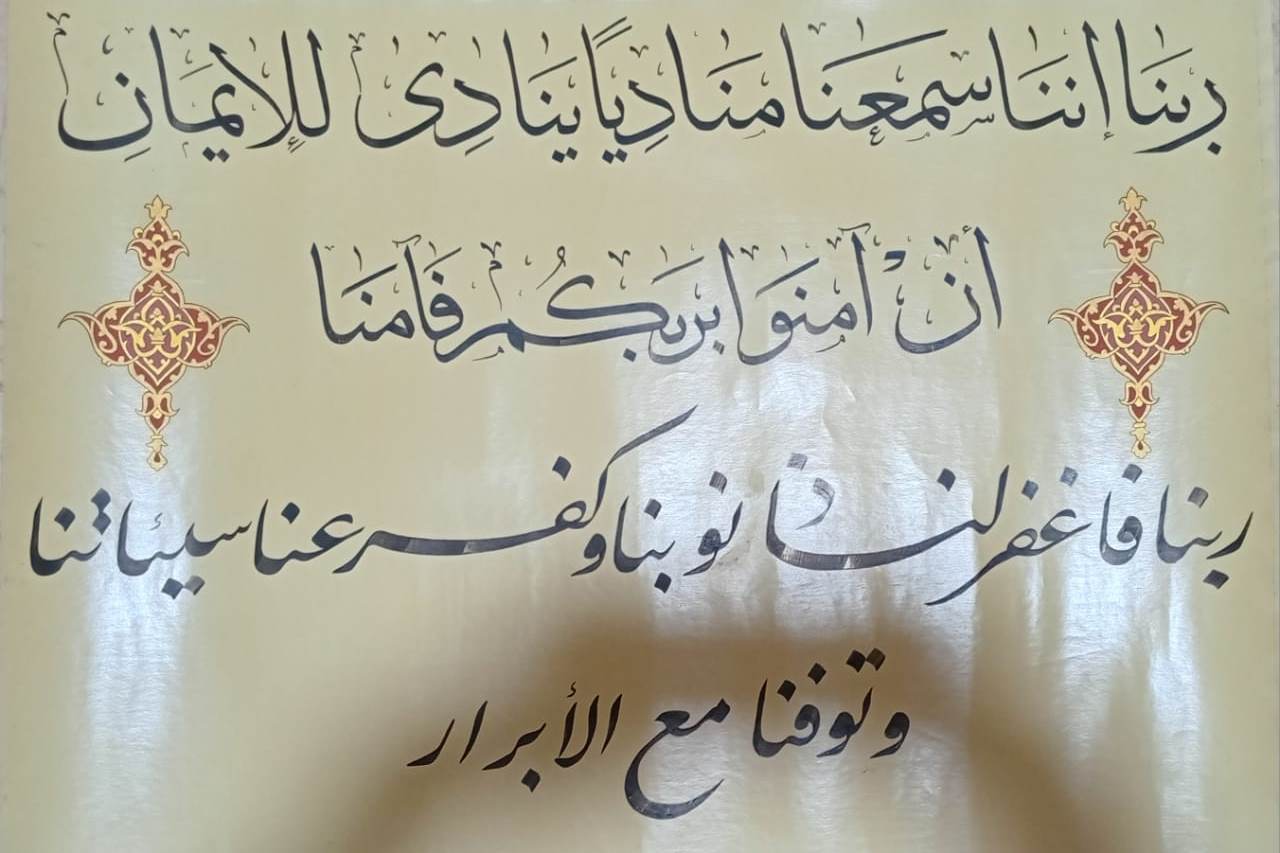 ربنا إننا سمعنا منادياً ينادى للإيمان
أن آمنوا بربكم فآمنا
ربنا فاغفر لنا ذنوبنا وكفر عنا سيئاتنا
وتوفنا مع الأبرار